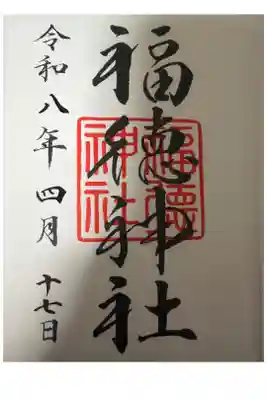 福徳神社
福徳
神社
令和八年 四月 十七日